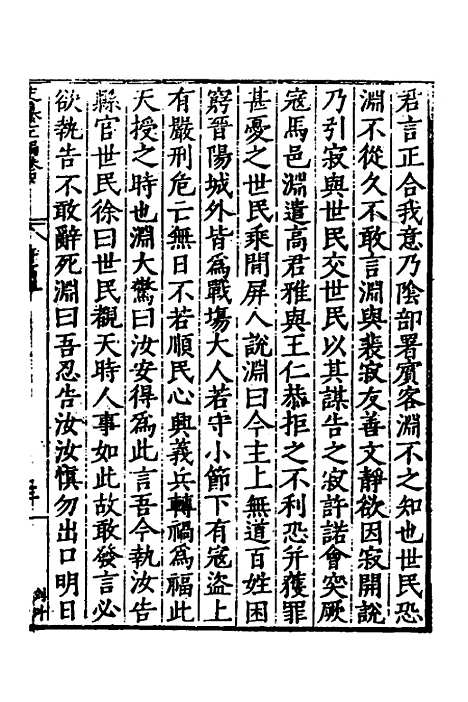 君言正合我意乃陰部署賓客淵不之知也世民恐
淵不從久不敢言淵與裴寂友善文靜欲因寂開說
乃引寂與世民交世民以其謀告之寂許諾會突厥
寇馬邑淵遣高君雅與王仁恭拒之不利恐并獲罪
甚憂之世民乘閒屏人說淵曰今主上無道百姓困
窮晉陽城外皆爲戰塲大人若守小節下有寇盜上
有嚴刑危亡無日不若順民心興義兵轉禍爲福此
天授之時也淵大驚曰汝安得爲此言吾今執汝告
縣官世民徐曰世民觀天時人事如此故敢發言必
欲執告不敢辭死淵曰吾忍告汝汝愼勿出口明日